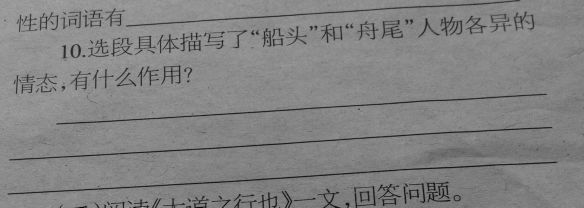 性的词语有
10.选段具体描写了“船头”和“舟尾”人物各异的
情态,有什么作用?
阅读《大道之行也》一文,回答问题。